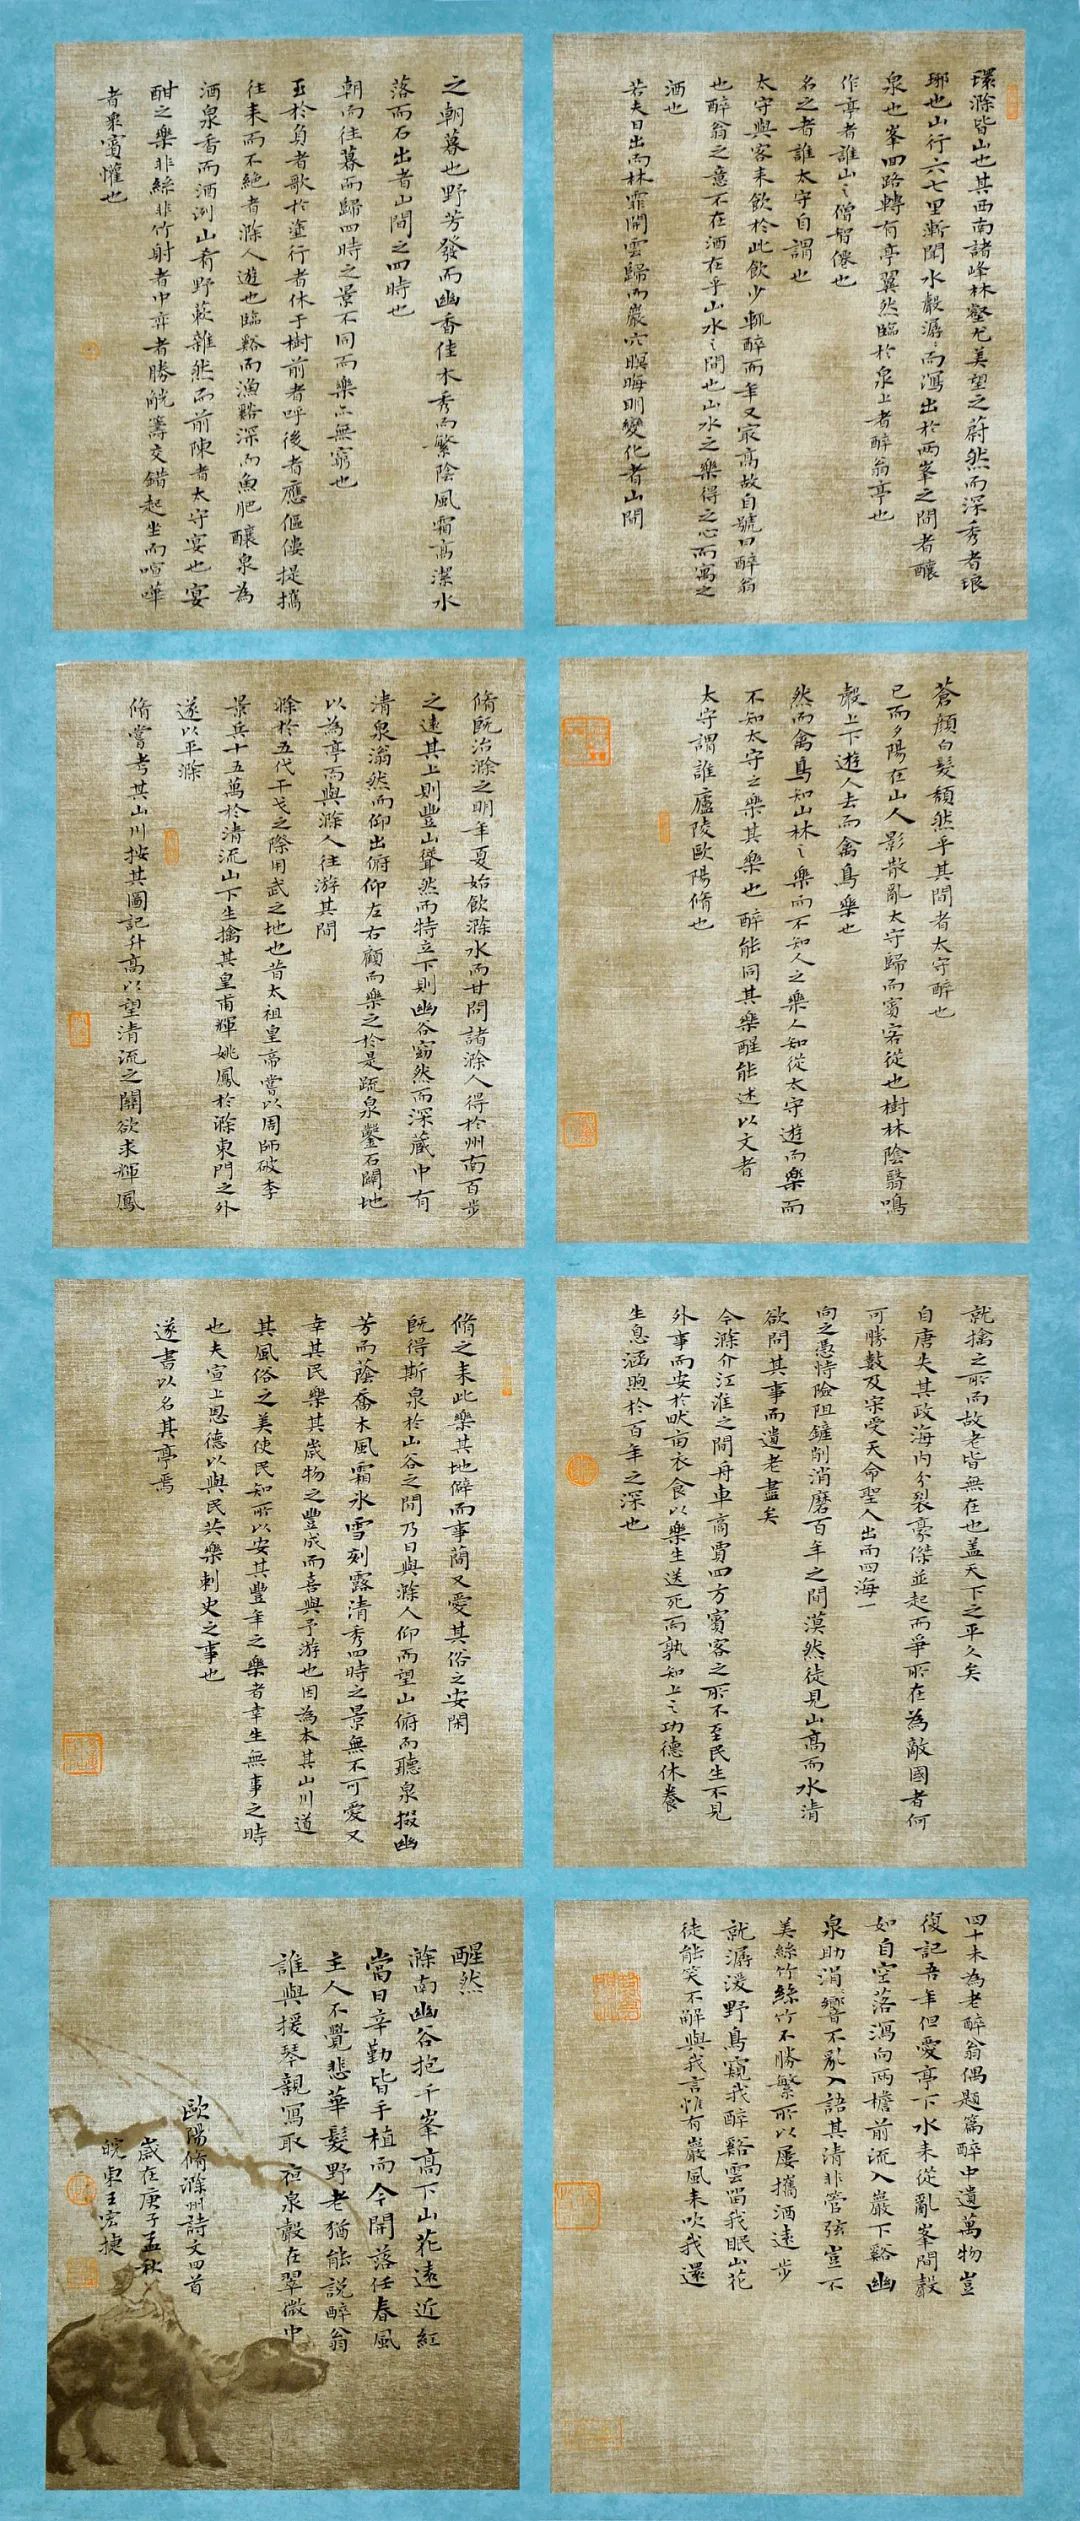 環滁皆山也其西南諸峰林壑尤美望之蔚然而深秀者琅
琊也山行六七里漸聞水聲潺〻而瀉出於兩峯之間者釀
泉也峯回路轉有亭翼然臨於泉上者醉翁亭也
作亭者誰山〻僧智僊也
名之者誰太守自謂也
太守與客来飲於此飲少輒醉而年又㝡高故自號曰醉翁
也醉翁之意不在酒在乎山水〻間也山水之樂得之心而寓之
酒也
若夫日出而林霏開雲歸而巖穴暝晦明變化者山間
之朝暮也野芳發而幽香佳木秀而繁陰風霜高潔水
落而石出者山間之四時也
朝而往暮而歸四時之景不同而樂亦無窮也
至於負者歌於塗行者休于樹前者呼後者應傴僂提攜
往来而不絶者滁人遊也臨谿而漁谿深而魚肥釀泉為
酒泉香而酒洌山肴野蔌雜然而前陳者太守宴也宴
酣之樂非絲非竹射者中弈者勝觥籌交錯起坐而喧嘩
者衆賓懽也
蒼顔白髮頽然乎其間者太守醉也
已而夕陽在山人影散亂太守歸而賓客從也樹林陰翳鳴
聲上下遊人去而禽鳥樂也
然而禽鳥知山林〻樂而不知人之樂人知從太守遊而樂而
不知太守之樂其樂也醉能同其樂醒能述以文者
太守謂誰廬陵歐陽脩也
脩既治滁之明年夏始飲滁水而甘問諸滁人得於州南百步
之遠其上則豐山聳然而特立下則幽谷窈然而深藏中有
清泉滃然而仰出俯仰左右顧而樂之於是疏泉鑿石闢地
以為亭而與滁人往游其間
滁於五代干戈之際用武之地也昔太祖皇帝嘗以周師破李
景兵十五萬於清流山下生擒其皇甫輝姚鳳於滁東門之外
遂以平滁
脩嘗考其山川按其圖記升高以望清流之關欲求輝鳳
就擒之所而故老皆無在也盖天下之平久矣
自唐失其政海内分裂豪傑並起而爭所在為敵國者何
可勝數及宋受天命聖人出而四海一
向之憑恃險阻鏟削消磨百年之間漠然徒見山高而水清
欲問其事而遺老盡矣
今滁介江淮之間舟車商賈四方賓客之所不至民生不見
外事而安於畎亩衣食以樂生送死而孰知上〻功德休養
生息涵煦於百年之深也
脩之来此樂其地僻而事蕑又愛其俗之安閑
既得斯泉於山谷之間乃日與滁人仰而望山俯而聽泉掇幽
芳而蔭喬木風霜氷雪刻露清秀四時之景無不可愛又
幸其民樂其歲物之豐成而喜與予游也因為本其山川道
其風俗之美使民知所以安其豐年之樂者幸生無事之時
也夫宣上恩德以與民共樂刺史之事也
遂書以名其亭焉
四十未為老醉翁偶題篇醉中遺萬物豈
復記吾年但愛亭下水来從亂峯間聲
如自空落瀉向兩檐前流入巖下谿幽
泉助涓響不亂人語其清非管弦豈不
美絲竹絲竹不勝繁所以屢攜酒遠步
就潺湲野鳥窺我醉谿雲留我眠山花
徒能笑不解與我言惟有巖風来吹我還
醒然
滁南幽谷抱千峯高下山花遠近紅
當日辛勤皆手植而今開落任春風
主人不覺悲華髮野老猶能説醉翁
誰與援琴親寫取夜泉聲在翠微中
歐陽脩滁州詩文四首
歲在庚子孟秋
皖東王宏捷